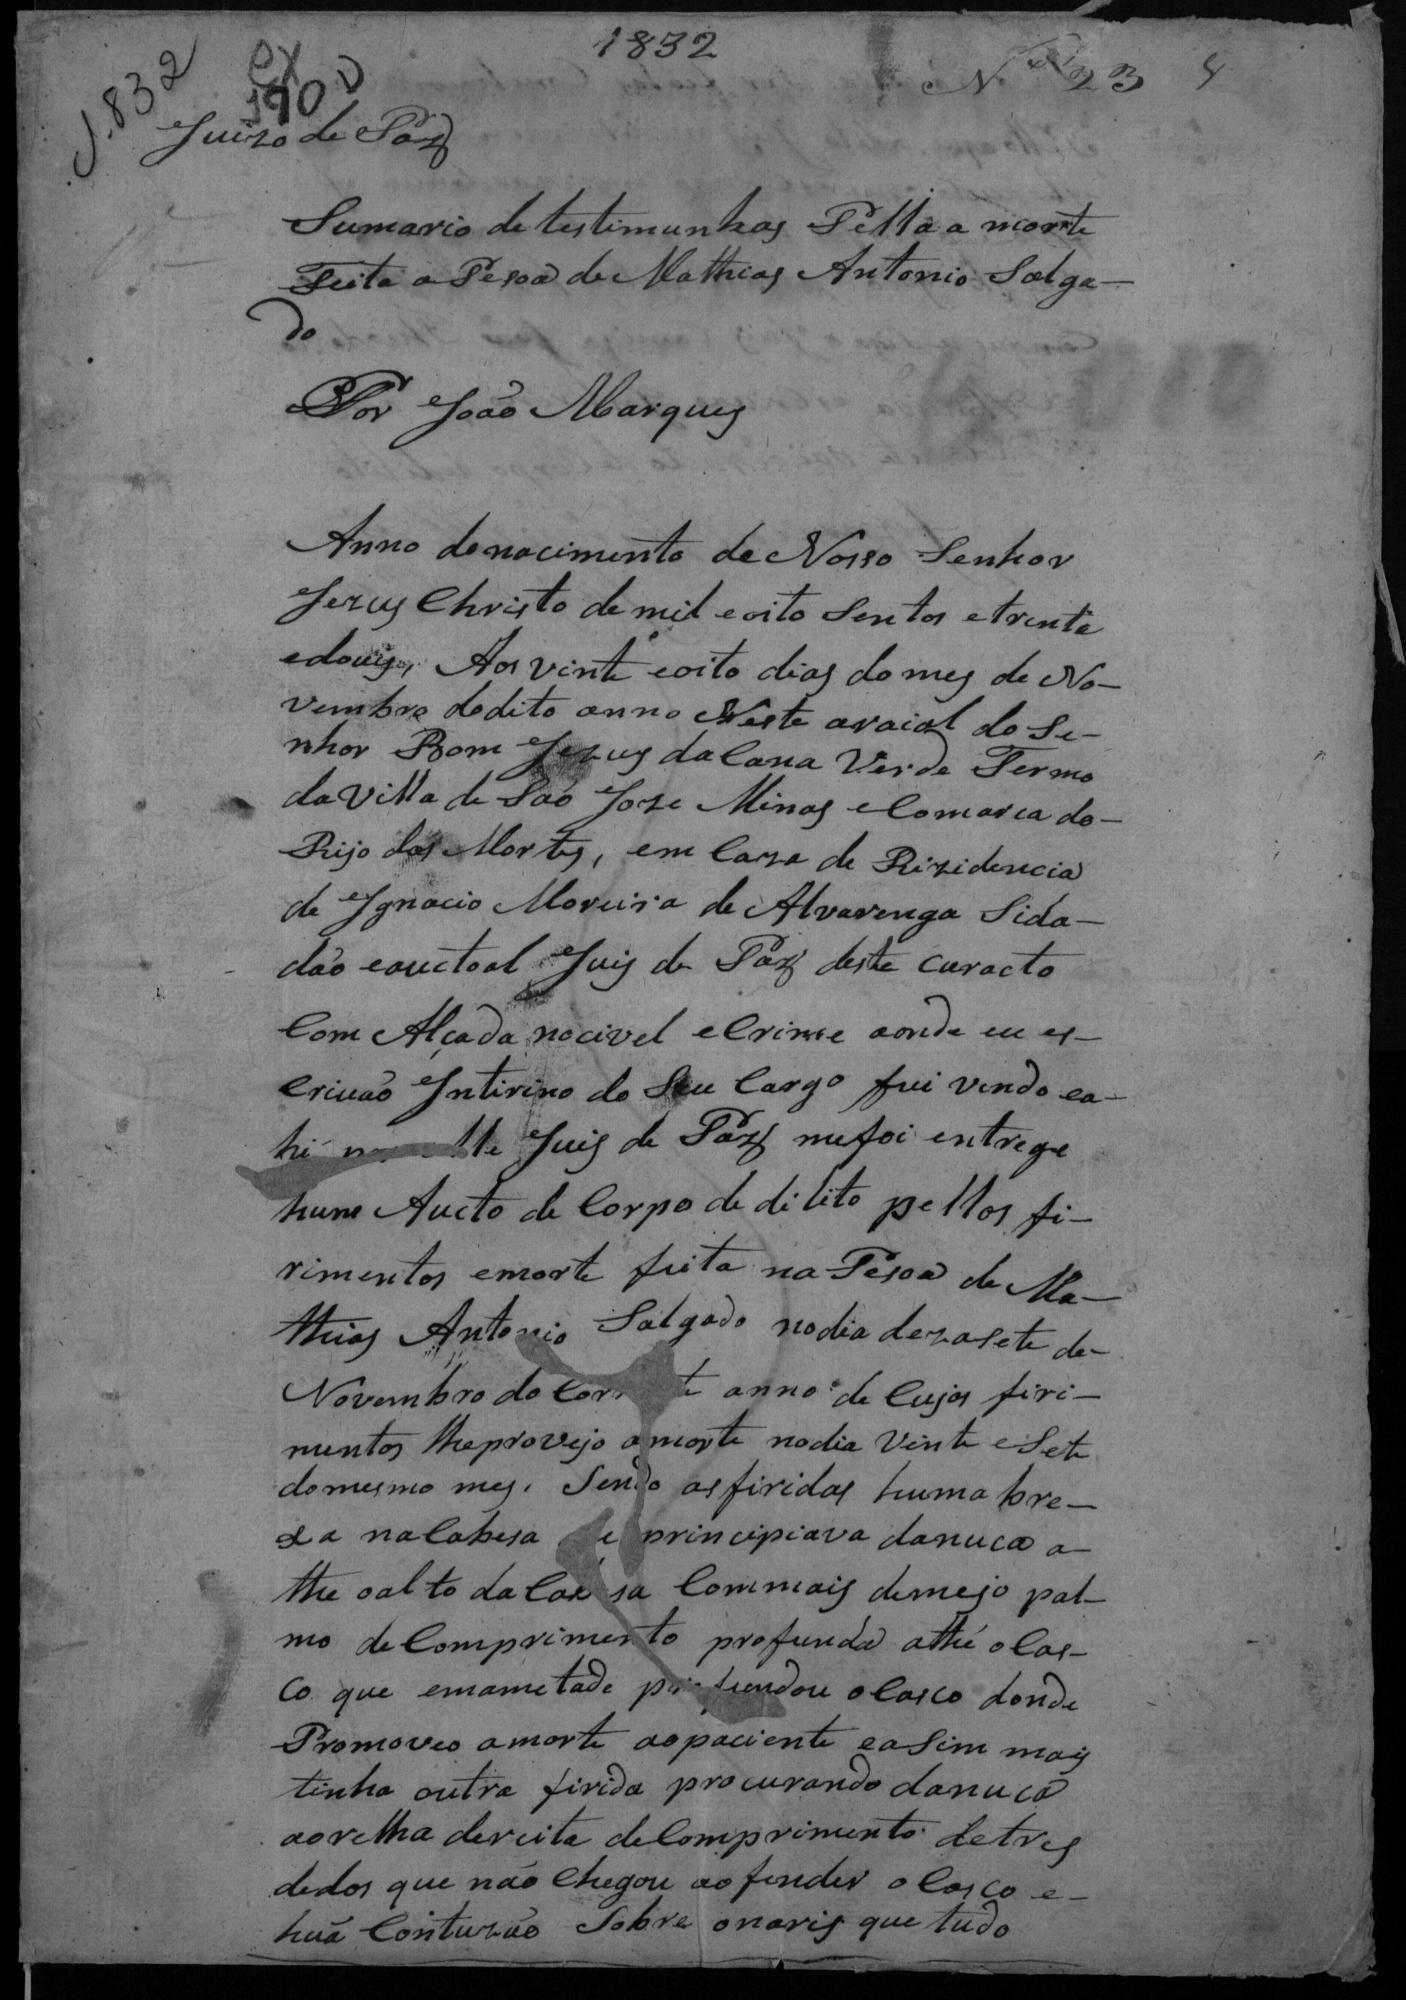 1832
J. 832
ex
1900
N 23 4
Juizo de Paz
Sumario de testimunhas Pella a morte
Feita a Pesoa de Mathias Antonio Salga-
do
Por João Marques
Anno do nacimento de Nosso Senhor
Jezus Christo de mil e oito Sentos e trinta
e douis, Aos vinte e oito dias do mes de No-
vembro do dito anno Neste araial do Se-
nhor Bom Jezus da Cana Verde Termo
da Villa de São Joze Minas e Comarca do-
Rijo das Mortes, em Caza de Rizidencia
de Ignacio Moreira de Alvarenga Sida-
dão e auctoal Juis de Paz deste curacto
Com Alçada no civel e Crime aonde eu es-
Crivão Intirino do Seu Cargo fui vindo e a-
hi Juis de Paz me foi entrege
hum Aucto de Corpo de dilito pellos fi-
rimentos e morte feita na Pesoa de Ma-
thias Antonio Salgado no dia dezasete de-
Novembro do anno de Cujos firi-
mentos lhe provejo a morte no dia Vinte e Sete
do mesmo mes. Sendo as firidas huma bre-
xa na Cabesa principiava da nuca a-
the o alto da Cabesa Com mais de mejo pal-
mo de Comprimento profunda athé o Cas-
Co que em a metade o Casco donde
Promoveo a morte ao paciente e asim mais
tinha outra firida procurando da nuca
a orelha dereita de Comprimento de tres
dedos que não Chegou ao fender o Casco e-
huã Contuzão Sobre o naris que tudo